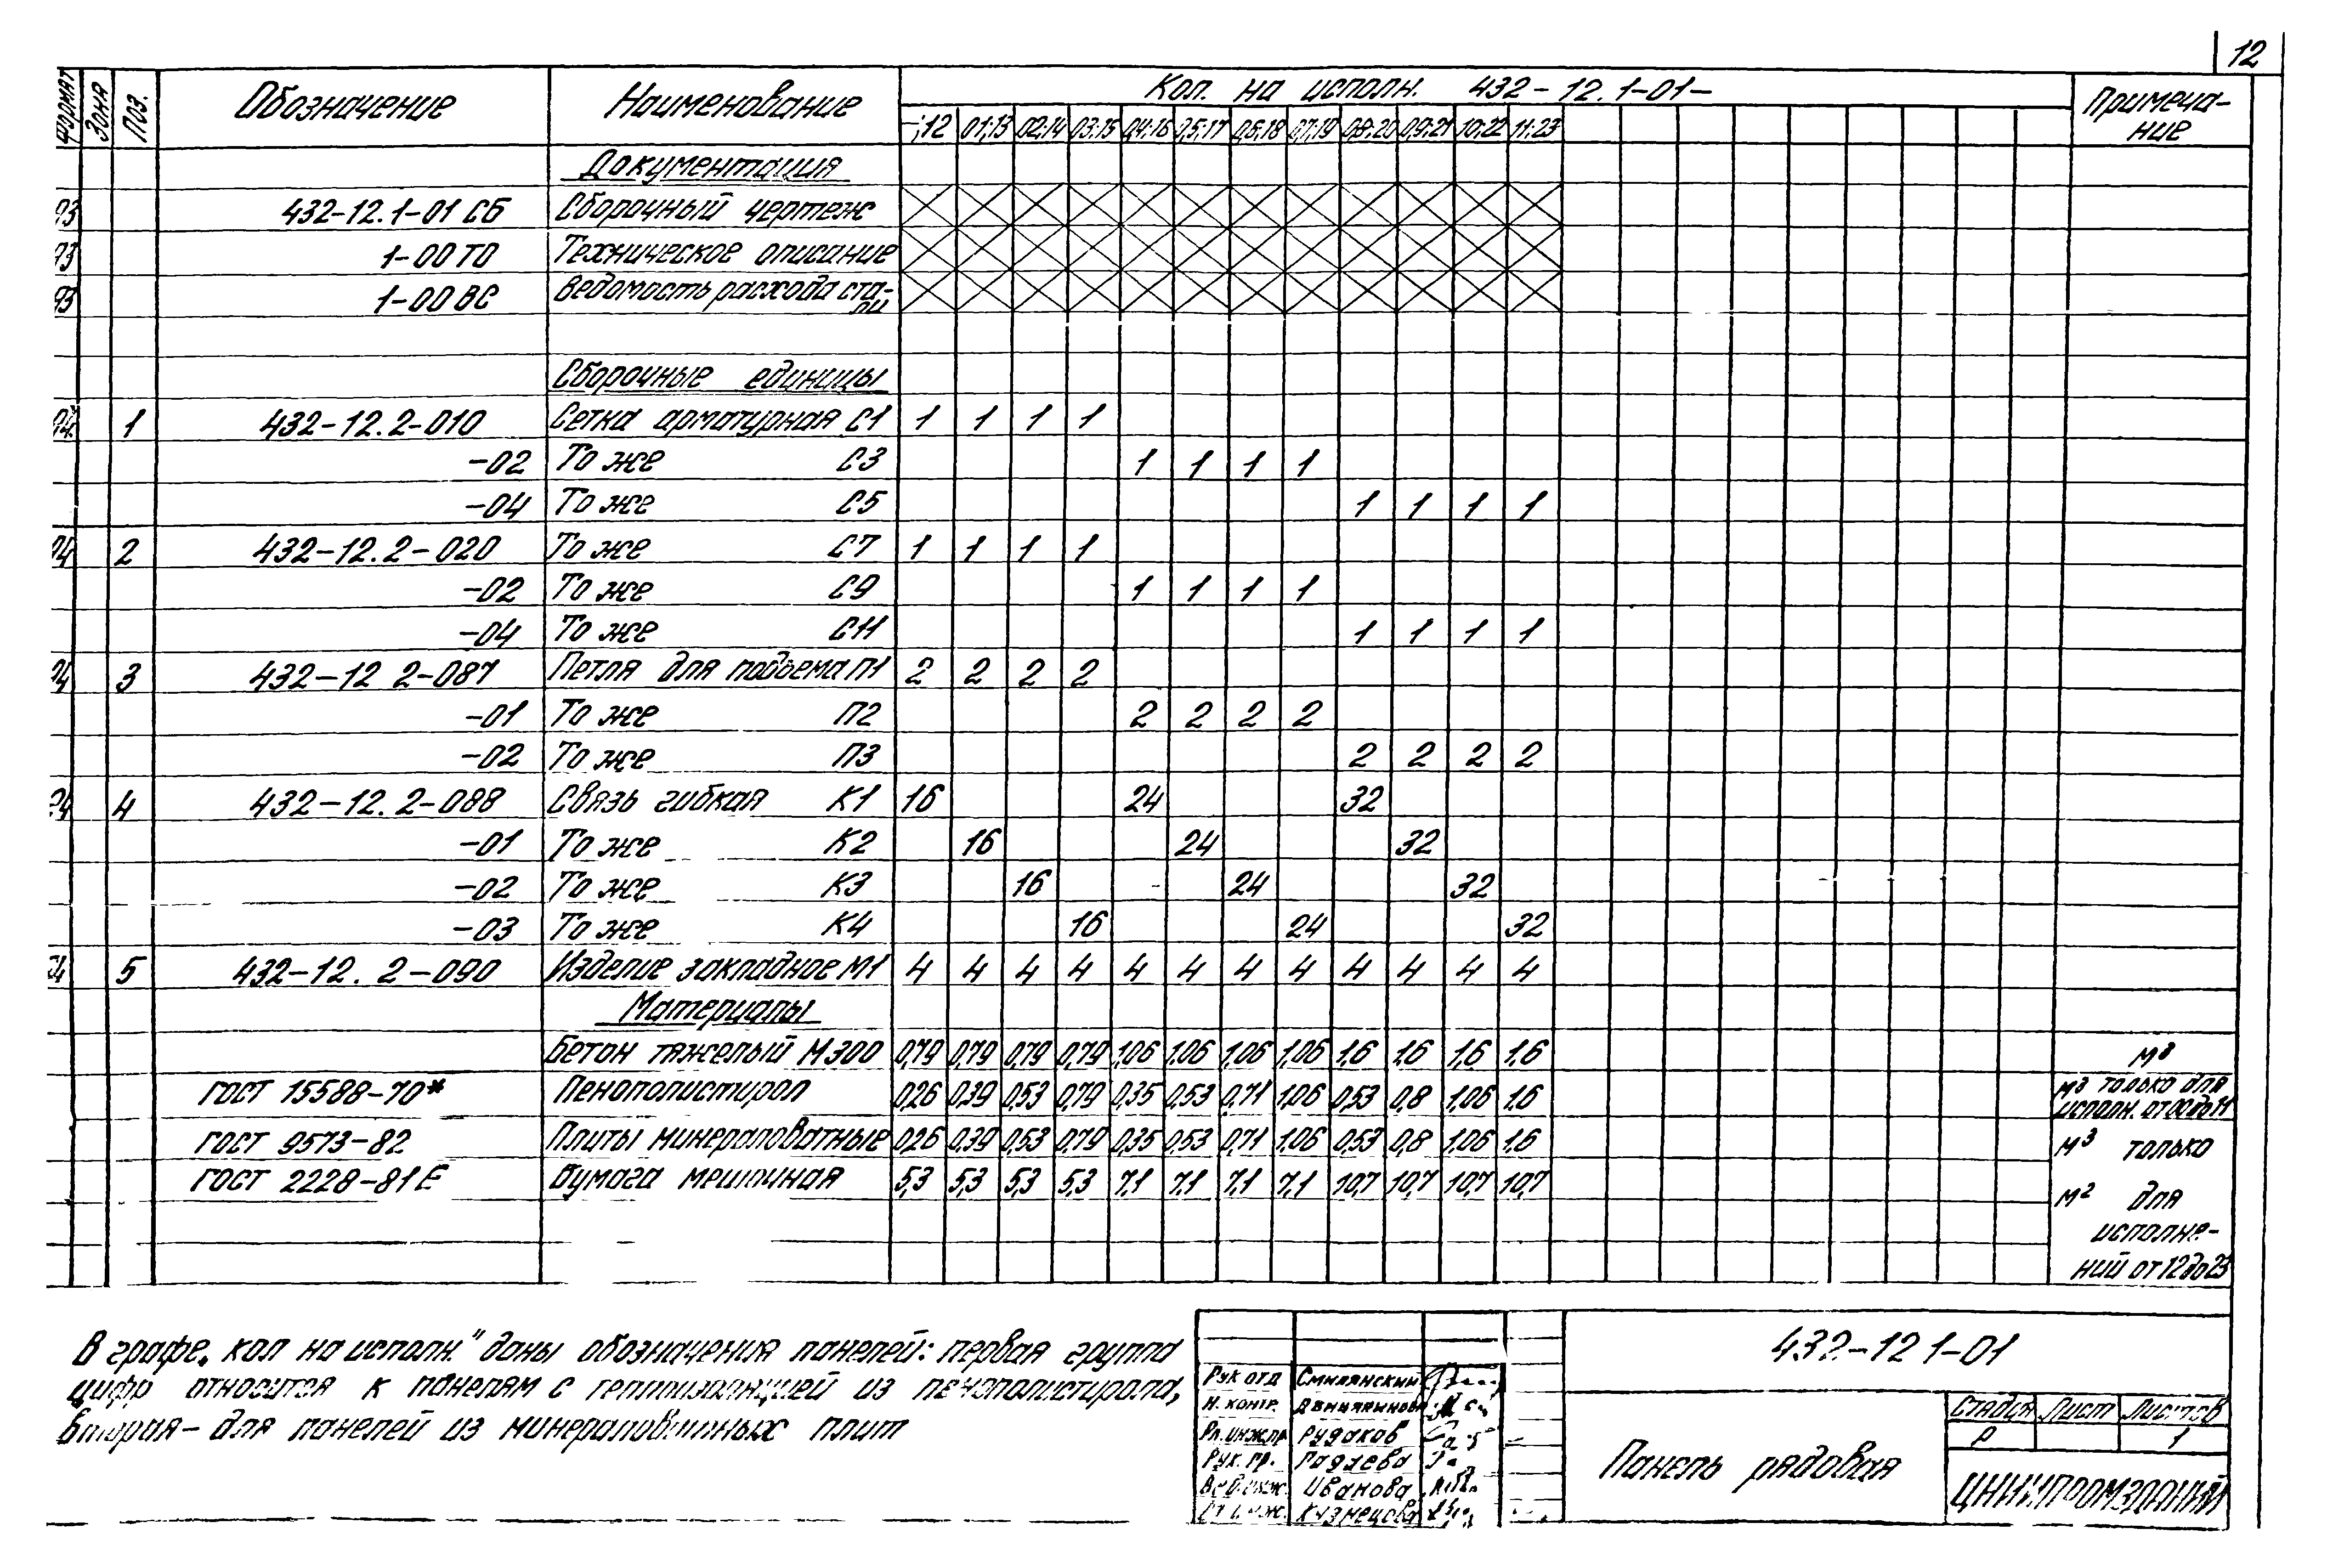 12
Формат Зона Поз. Обозначение Наименование Кол. на исполн. 432-12.1-01- Примеча-
ние
-;12 01;13 02;14 03;15 04;16 05;17 06;18 07;19 08;20 09;21 10;22 11;23
Документация
432-12.1-01 СБ Сборочный чертеж
1-00 ТО Техническое описание
1-00 ВС Ведомость расхода ста-
ли
Сборочные единицы
1 432-12.2-010 Сетка арматурная С1 1 1 1 1
-02 То же С3 1 1 1 1
-04 То же С5 1 1 1 1
2 432-12.2-020 То же С7 1 1 1 1
-02 То же С9 1 1 1 1
-04 То же С11 1 1 1 1
3 432-12 2-087 Петля для подъема П1 2 2 2 2
-01 То же П2 2 2 2 2
-02 То же П3 2 2 2 2
4 432-12.2-088 Связь гибкая К1 16 24 32
-01 То же К2 16 24 32
-02 То же К3 16 24 32
-03 То же К4 16 24 32
5 432-12.2-090 Изделие закладное М1 4 4 4 4 4 4 4 4 4 4 4 4
Материалы
Бетон тяжелый М300 0,79 0,79 0,79 0,79 1,06 1,06 1,06 1,06 1,6 1,6 1,6 1,6 м3
ГОСТ 15588-70* Пенополистирол 0,26 0,39 0,53 0,79 0,35 0,53 0,71 1,06 0,53 0,8 1,06 1,6 м3 только для
исполн. от 00 до 11
ГОСТ 9573-82 Плиты минераловатные 0,26 0,39 0,53 0,79 0,35 0,53 0,71 1,06 0,53 0,8 1,06 1,6 м3 только
ГОСТ 2228-81Е Бумага мешочная 5,3 5,3 5,3 5,3 7,1 7,1 7,1 7,1 10,7 10,7 10,7 10,7 м2 для
исполне-
ний от 12 до 23
В графе „кол на исполн." даны обозначения панелей: первая группа
цифр относится к панелям с теплоизоляцией из пенополистирола,
вторая – для панелей из минераловатных плит
432-12 1-01
Рук отд Смилянский
Н. контр.
Гл.инж.пр Рудаков
Рук. гр. Гадаева
Вед.инж. Иванова
Ст.инж. Кузнецова
Панель рядовая
Стадия Лист Листов
Р 1
ЦНИИПРОМЗДАНИЙ